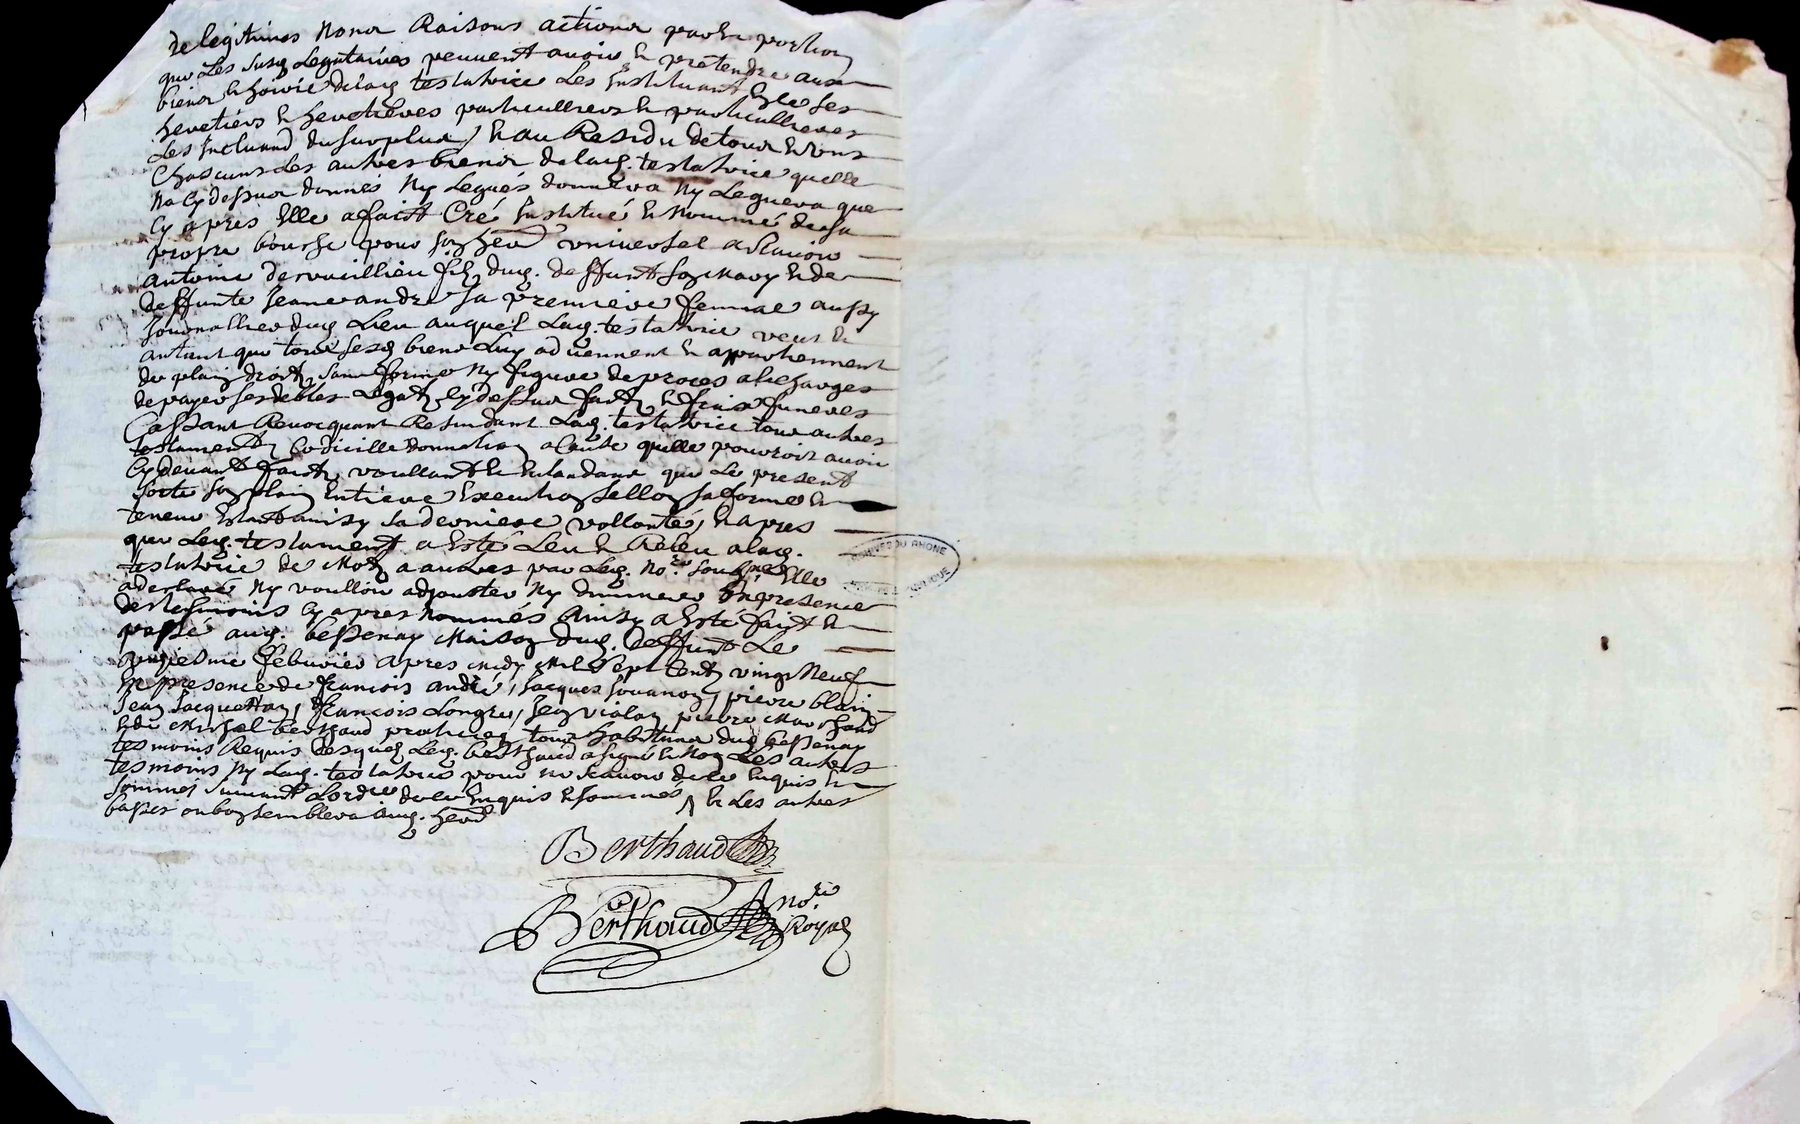 de legitimes noms Raisons actions part et portion
que Les susd Legataires peuvent avoir et pretendre aux
biens et hoirie delad testatrice Les Instituant Elle ses
heretiers et heretieres particulliers et particullieres
Les Incluand du surplus, Et au Residu de tous Et uns
Chascuns Les autres biens de lad. testatrice quelle
na Cy dessus donnés Ny Legués donnera Ny Leguera que
Cy apres Elle a faict Cré Institué Et nommé de sa
propre bouche pour son her universel a scavoir
antoine dervieillieu fils dud. deffunt son mary et de
deffunte Jeane andre sa premiere femme aussy
Journallier dud Lieu auquel Lad. testatrice veut Et
antant que tous sesd biens Luy adviennent Et appartiennent
de plain droit, sans forme Ny figure de proces a la Charges
de payer ses debtes Legats Cy dessus faits Et frais funeres
Cassant Revocquant Resindant Lad. testatrice tous autres
testaments Codicille donnation a Cause quelle pourroit avoir
Cy devant faits, voullant Et Entandant que Le present
sorte son plain Entiere Execution sellon sa forme Et
teneur Estant ainsy sa derniere vollonté, Et apres
que Led. testament a Esté Leu Et Releu a lad.
testatrice de Mot a autres par Led. No.re soubsné Elle
a desclaré Ny voulloir adjouster Ny diminuer En presence
des tesmoins Cy apres nommés Ainsy a Esté fait Et
passé aud. bessenay Maison dud. deffunt Le
febvrier apres midy Mil Sept Cents vingt Neuf
En presence de francois andré, Jacques Jouanon, pierre blain
Jean Jacquettan, francois Longre, Jean violay pierre Marchand
Et de Michel berthaud praticien tous habitans dud bessenay
tesmoins Requis Desquels Led. berthaud a signé Et Non Les autres
tesmoins Ny Lad. testatrice pour ne scavoir de ce Enquis Et
sommes suivant Lordre de ce Enquis Et sommés, Et Les autres
passes on bon semblera aud. her
Berthaud
Berthaud No.re
Royal
ARCHIVES DU RHONE